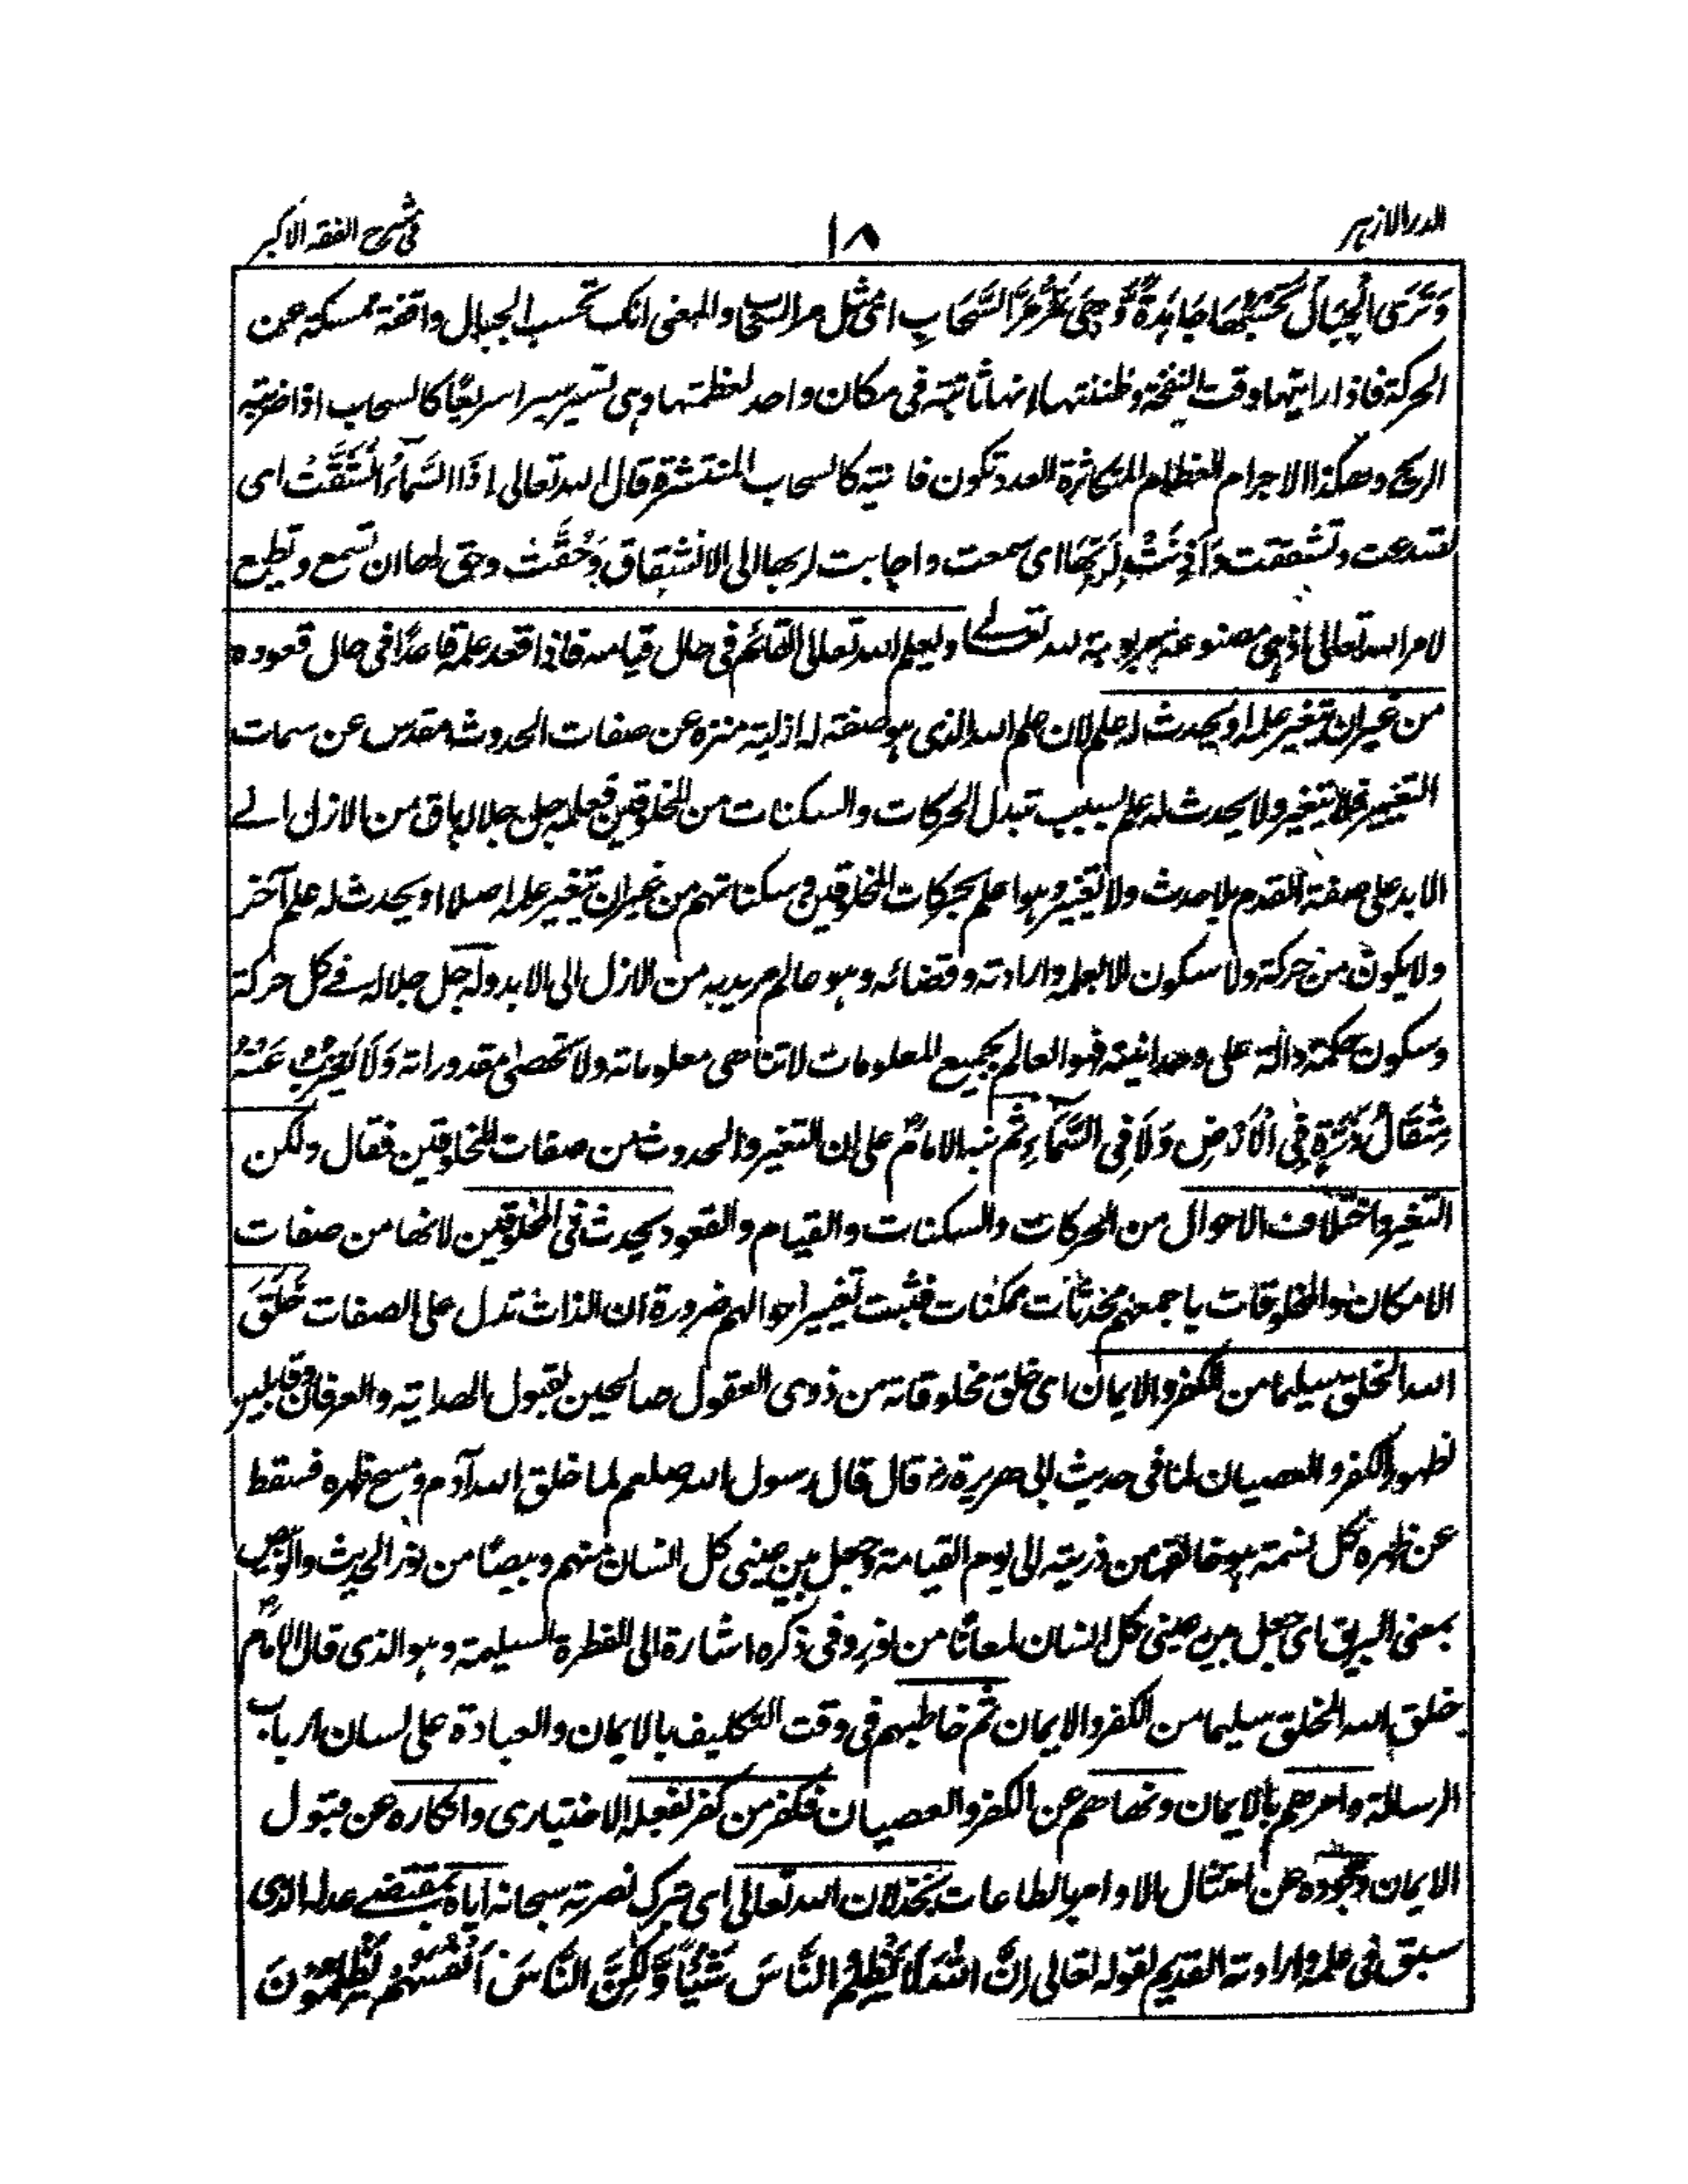 الدر الازہر
١٨
فی شرح الفقہ الاکبر
وَتَرَى الْجِبَالَ تَحْسَبُهَا جَامِدَةً وَّهِيَ تَمُرُّ مَرَّ السَّحَابِ ای مثل مر السحاب والمعنی انک تحسب الجبال واقفۃ ممسکۃ عن
الحرکۃ فاذا رایتہا وقت النفخۃ وظننتہا انہا ثابتۃ فی مکان واحد لعظمتہا وہی تسیر سیرا سریعًا کالسحاب اذا ضربتہ
الریح وھکذا الاجرام العظام المتکاثرۃ العدد تکون فانیۃ کالسحاب المنتشرۃ قال اللہ تعالی اِذَا السَّمَآءُ انْشَقَّتْ ای
تصدعت وتشققت وَاَذِنَتْ لِرَبِّهَا ای سمعت واجابت لربھا الی الانشقاق وَحُقَّتْ وحق لھا ان تسمع وتطیع
لامر اللہ تعالی اذ ہی مصنوعۃ مربوبۃ للہ تعالے ویعلم اللہ تعالی القائم فی حال قیامہ فاذا قعد علمہ قاعدًا فی حال قعودہ
من غیر ان یتغیر علمہ او یحدث لہ علم لان علم اللہ الذی ہو صفۃ لہ ازلیۃ منزہ عن صفات الحدوث مقدس عن سمات
التغییر فلا یتغیر ولا یحدث لہ علم بسبب تبدل الحرکات والسکنات من المخلوقین فعلمہ جل جلالہ باق من الازل الے
الابد علی صفۃ القدم بلا حدث ولا تغیر وہو اعلم بحرکات المخلوقین وسکناتہم من غیر ان یتغیر علمہ اصلا او یحدث لہ علم آخر
ولا یکون من حرکۃ ولا سکون الا بعلمہ وارادتہ وقضائہ وہو عالم مرید بہ من الازل الی الابد ولہ جل جلالہ فے کل حرکۃ
وسکون حکمۃ دالۃ علی وحدانیتہ فہو العالم بجمیع المعلومات لا تتناھی معلوماتہ ولا تحصی مقدوراتہ وَلَا يَعْزُبُ عَنْهُ
مِثْقَالُ ذَرَّةٍ فِي الْاَرْضِ وَلَا فِي السَّمَآءِ ثم نبہ الامامؒ علی ان التغیر والحدوث من صفات المخلوقین فقال ولکن
التغیر واختلاف الاحوال من الحرکات والسکنات والقیام والقعود یحدث فی المخلوقین لانھا من صفات
الامکان والمخلوقات باجمعہم محدثات ممکنات فثبت تغییر احوالہم ضرورۃ ان الذات تدل علی الصفات خَلَقَ
اللہ الخلق سلیما من الکفر والایمان ای خلق مخلوقاتہ من ذوی العقول صالحین لقبول الھدایۃ والعرفان وقابلین
لظہور الکفر والعصیان لما فی حدیث ابی ھریرۃ رض قال قال رسول اللہ صلعم لما خلق اللہ آدم ومسح ظہرہ فسقط
عن ظہرہ کل نسمۃ ہو خالقہا من ذریتہ الی یوم القیامۃ وجعل بین عینی کل انسان منہم وبیصًا من نور الحدیث والوبیص
بمعنی البریق ای جعل بین عینی کل انسان لمعانًا من نور وفی ذکرہ اشارۃ الی الفطرۃ السلیمۃ وہو الذی قال الامامؒ
خلق اللہ الخلق سلیما من الکفر والایمان ثم خاطبہم فی وقت التکلیف بالایمان والعبادۃ علی لسان ارباب
الرسالۃ وامرھم بالایمان ونھاھم عن الکفر والعصیان فکفر من کفر بفعلہ الاختیاری وانکارہ عن قبول
الایمان وجحودہ عن امتثال الاوامر بالطاعات بخذلان اللہ تعالی ای بترک نصرتہ سبحانہ ایاہ بمقتضے عدلہ الذی
سبق فی علمہ وارادتہ القدیم لقولہ تعالی اِنَّ اللّٰهَ لَا يَظْلِمُ النَّاسَ شَيْئًا وَّلٰكِنَّ النَّاسَ اَنْفُسَهُمْ يَظْلِمُوْنَ